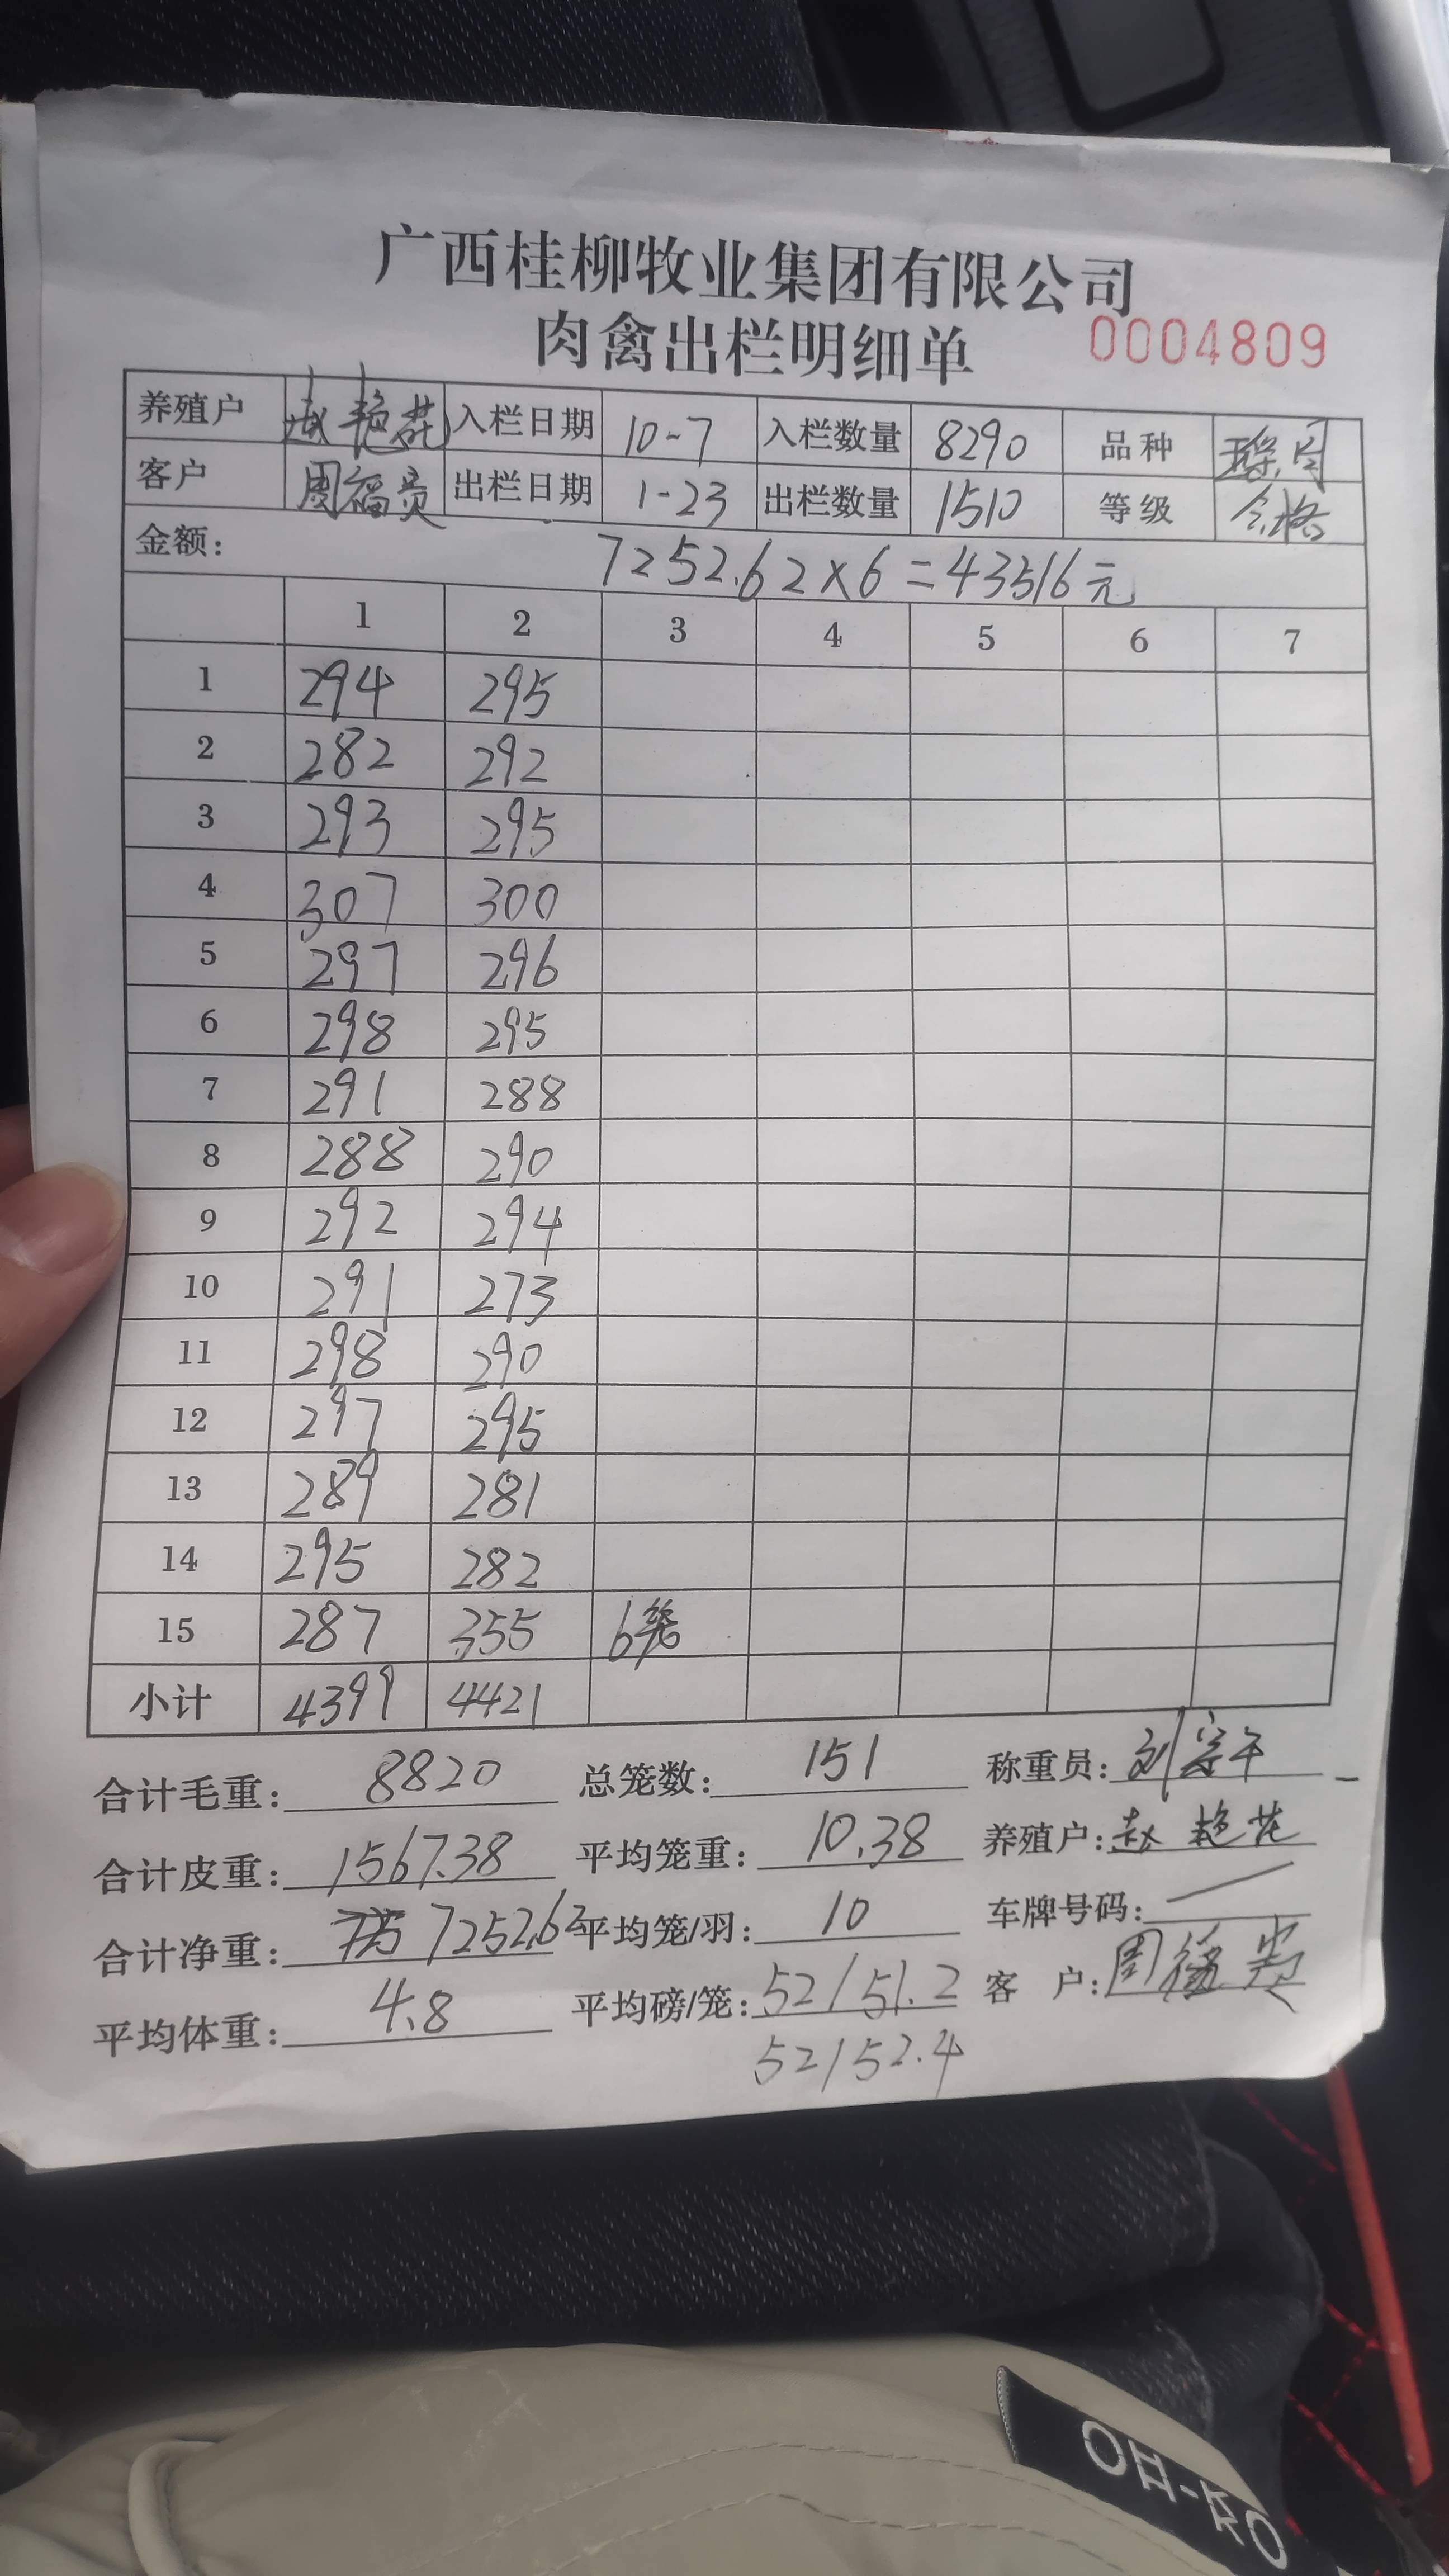 广西桂柳牧业集团有限公司
肉禽出栏明细单 0004809
养殖户 赵艳花 入栏日期 10-7 入栏数量 8290 品种
客户 周福贵 出栏日期 1-23 出栏数量 1510 等级 合格
金额: 7252.62×6=43516元
1 2 3 4 5 6 7
1 294 295
2 282 292
3 293 295
4 307 300
5 297 296
6 298 295
7 291 288
8 288 290
9 292 294
10 291 273
11 298 290
12 297 295
13 289 281
14 295 282
15 287 355 6笼
小计 4399 4421
合计毛重: 8820 总笼数: 151 称重员:
合计皮重: 1567.38 平均笼重: 10.38 养殖户: 赵艳花
合计净重: 7252.62 平均笼/羽: 10 车牌号码:
平均体重: 4.8 平均磅/笼: 52/51.2 客 户: 周福贵
52/52.4
OH-KO